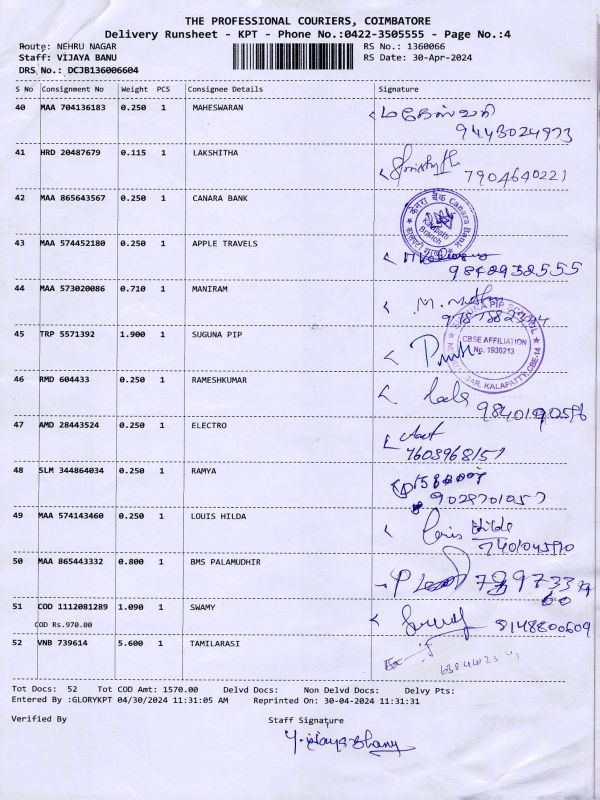 THE PROFESSIONAL COURIERS, COIMBATORE
Delivery Runsheet - KPT - Phone No.:0422-3505555 - Page No.:4
Route: NEHRU NAGAR RS No.: 1360066
Staff: VIJAYA BANU RS Date: 30-Apr-2024
DRS No.: DCJB136006604
S No Consignment No Weight PCS Consignee Details Signature
40 MAA 704136183 0.250 1 MAHESWARAN
9443024973
41 HRD 20487679 0.115 1 LAKSHITHA
7904640221
42 MAA 865643567 0.250 1 CANARA BANK
केनरा बैंक Canara Bank
Kalapatti Branch
43 MAA 574452180 0.250 1 APPLE TRAVELS
9842938555
44 MAA 573020086 0.710 1 MANIRAM
45 TRP 5571392 1.900 1 SUGUNA PIP
SUGUNA PIP SCHOOL
CBSE AFFILIATION
No. 1930213
NEHRU NAGAR, KALAPATTY, CBE-14
46 RMD 604433 0.250 1 RAMESHKUMAR
47 AMD 28443524 0.250 1 ELECTRO
7603968157
48 SLM 344864034 0.250 1 RAMYA
9028701057
49 MAA 574143460 0.250 1 LOUIS HILDA
Hilda
50 MAA 865443332 0.800 1 BMS PALAMUDHIR
51 COD 1112081289 1.090 1 SWAMY
8148800609
COD Rs.970.00
52 VNB 739614 5.600 1 TAMILARASI
Tot Docs: 52 Tot COD Amt: 1570.00 Delvd Docs: Non Delvd Docs: Delvy Pts:
Entered By :GLORYKPT 04/30/2024 11:31:05 AM Reprinted On: 30-04-2024 11:31:31
Verified By Staff Signature